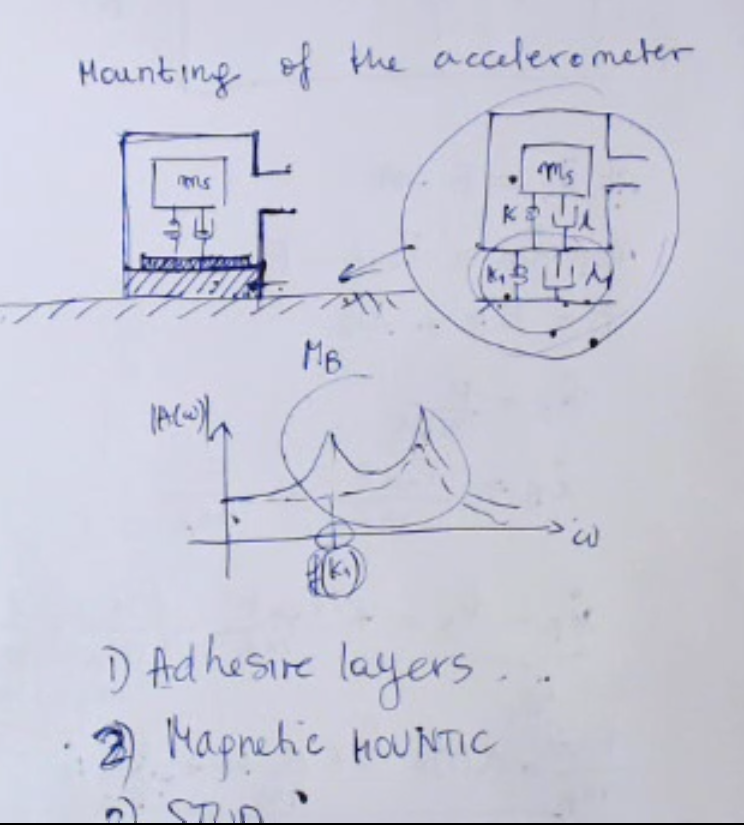 Mounting of the accelerometer
ms
ms
K
K1
MB
|A(ω)|
ω
f(K1)
1) Adhesive layers ...
2) Magnetic MOUNTIC
3) STUD